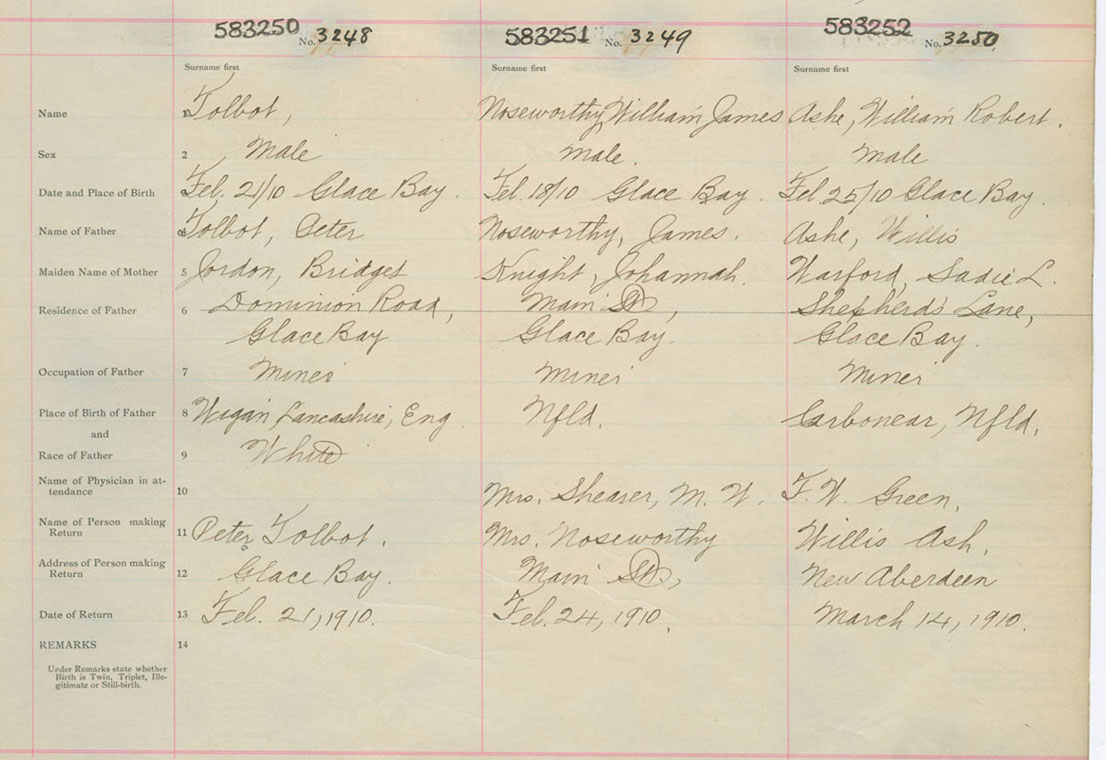 583250 No. 3248 583251 No. 3249 583252 No. 3250
Surname first Surname first Surname first
Name 1 Tolbot, Noseworthy, William James Ashe, William Robert.
Sex 2 Male Male. Male
Date and Place of Birth Feb. 21/10 Glace Bay. Feb. 18/10 Glace Bay. Feb 25/10 Glace Bay.
Name of Father Tolbot, Peter Noseworthy, James. Ashe, Willis
Maiden Name of Mother 5 Jordon, Bridget Knight, Johannah. Warford, Sadie L.
Residence of Father 6 Dominion Road, Main St, Shepherd's Lane,
Glace Bay Glace Bay. Glace Bay.
Occupation of Father 7 Miner Miner Miner
Place of Birth of Father 8 Wigan Lancashire, Eng. Nfld. Carbonear, Nfld.
and
Race of Father 9 White
Name of Physician in at-
tendance 10 Mrs. Shearer, M. W. F. W. Green.
Name of Person making
Return 11 Peter Tolbot. Mrs. Noseworthy Willis Ash.
Address of Person making
Return 12 Glace Bay. Main St., New Aberdeen
Date of Return 13 Feb. 21, 1910. Feb. 24, 1910. March 14, 1910.
REMARKS 14
Under Remarks state whether
Birth is Twin, Triplet, Ille-
gitimate or Still-birth.